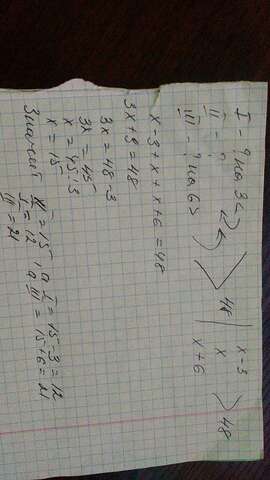 I - ? на 3 < | x - 3
II - ? | x
III - ? на 6 > | x + 6
48 | 48
x - 3 + x + x + 6 = 48
3x + 3 = 48
3x = 48 - 3
3x = 45
x = 45 : 3
x = 15
Значит II = 15, а I = 15 - 3 = 12
I = 12, а III = 15 + 6 = 21
III = 21